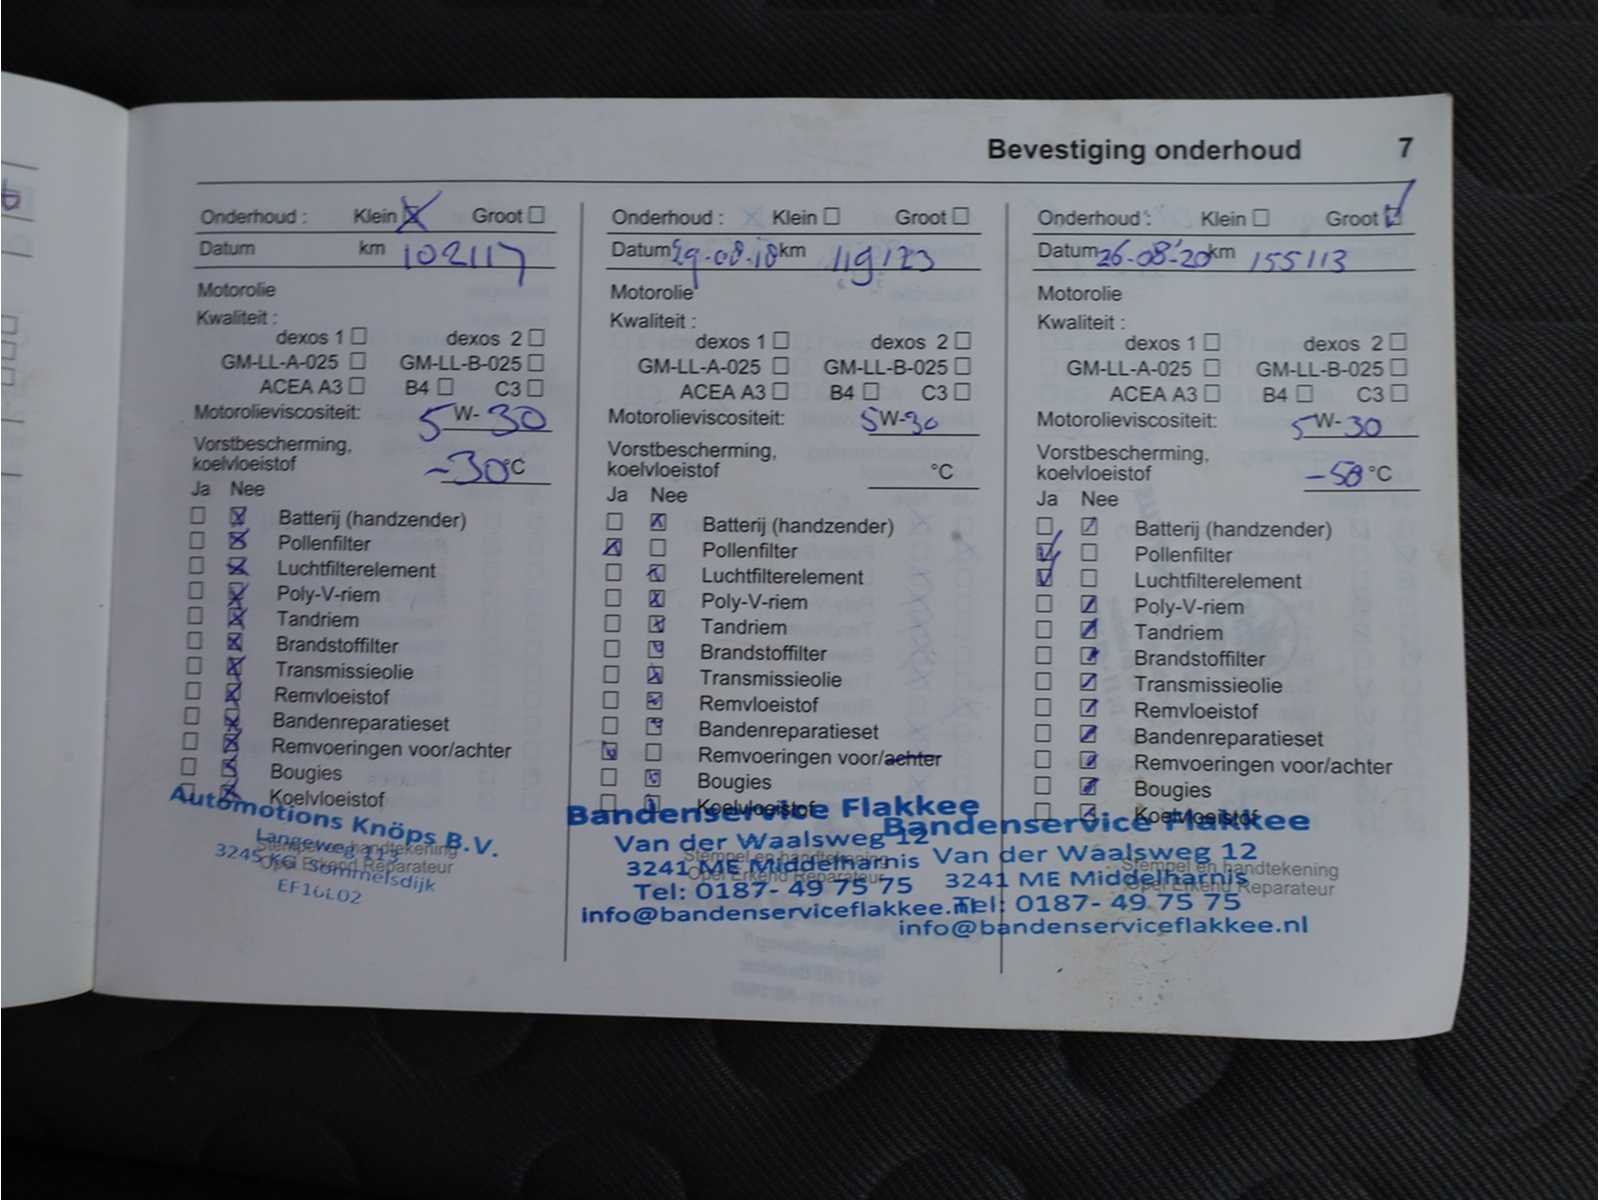 Bevestiging onderhoud 7
Onderhoud : Klein Groot
Datum km 102117
Motorolie
Kwaliteit :
dexos 1 dexos 2
GM-LL-A-025 GM-LL-B-025
ACEA A3 B4 C3
Motorolieviscositeit: 5 W- 30
Vorstbescherming,
koelvloeistof -30 °C
Ja Nee
Batterij (handzender)
Pollenfilter
Luchtfilterelement
Poly-V-riem
Tandriem
Brandstoffilter
Transmissieolie
Remvloeistof
Bandenreparatieset
Remvoeringen voor/achter
Bougies
Koelvloeistof
Automotions Knöps B.V.
Langeweg 113
Stempel en handtekening
3245 KG Sommelsdijk
Opel Erkend Reparateur
EF16L02
Onderhoud : Klein Groot
Datum 29-08-18 km 119173
Motorolie
Kwaliteit :
dexos 1 dexos 2
GM-LL-A-025 GM-LL-B-025
ACEA A3 B4 C3
Motorolieviscositeit: 5W-30
Vorstbescherming,
koelvloeistof °C
Ja Nee
Batterij (handzender)
Pollenfilter
Luchtfilterelement
Poly-V-riem
Tandriem
Brandstoffilter
Transmissieolie
Remvloeistof
Bandenreparatieset
Remvoeringen voor/achter
Bougies
Koelvloeistof
Bandenservice Flakkee
Van der Waalsweg 12
Stempel en handtekening
3241 ME Middelharnis
Opel Erkend Reparateur
Tel: 0187- 49 75 75
info@bandenserviceflakkee.nl
Onderhoud : Klein Groot
Datum 26-08-'20 km 155113
Motorolie
Kwaliteit :
dexos 1 dexos 2
GM-LL-A-025 GM-LL-B-025
ACEA A3 B4 C3
Motorolieviscositeit: 5W-30
Vorstbescherming,
koelvloeistof -58 °C
Ja Nee
Batterij (handzender)
Pollenfilter
Luchtfilterelement
Poly-V-riem
Tandriem
Brandstoffilter
Transmissieolie
Remvloeistof
Bandenreparatieset
Remvoeringen voor/achter
Bougies
Koelvloeistof
Bandenservice Flakkee
Van der Waalsweg 12
Stempel en handtekening
3241 ME Middelharnis
Opel Erkend Reparateur
Tel: 0187- 49 75 75
info@bandenserviceflakkee.nl